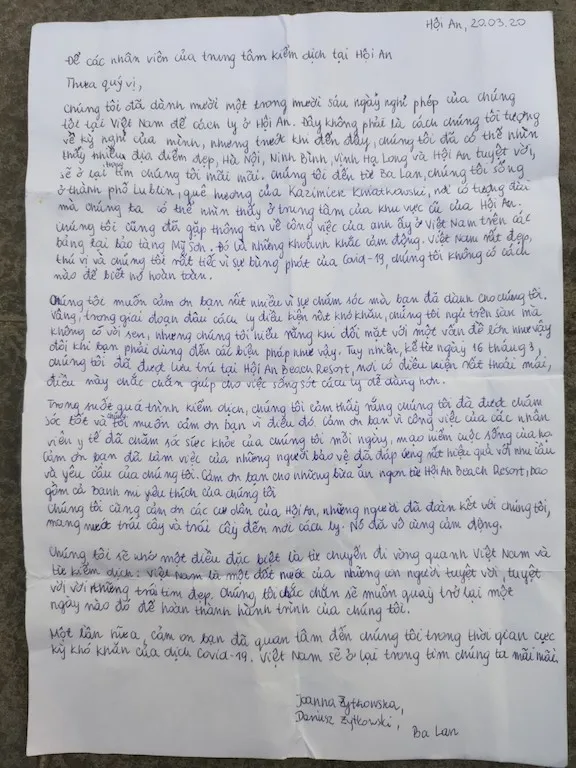 Hội An, 20.03.20
Để các nhân viên của trung tâm kiểm dịch tại Hội An
Thưa quý vị,
Chúng tôi đã dành mười một trong mười sáu ngày nghỉ phép của chúng
tôi tại Việt Nam để cách ly ở Hội An. Đây không phải là cách chúng tôi tưởng tượng
về kỳ nghỉ của mình, nhưng trước khi đến đây, chúng tôi đã có thể nhìn
thấy nhiều địa điểm đẹp, Hà Nội, Ninh Bình, Vịnh Hạ Long và Hội An tuyệt vời,
sẽ ở lại trong tim chúng tôi mãi mãi. Chúng tôi đến từ Ba Lan, chúng tôi sống
ở thành phố Lublin, quê hương của Kazimierz Kwiatkowski, nơi có tượng đài
mà chúng ta có thể nhìn thấy ở trung tâm của khu vực cũ của Hội An.
Chúng tôi cũng đã gặp thông tin về công việc của anh ấy ở Việt Nam trên các
bảng tại bảo tàng Mỹ Sơn. Đó là những khoảnh khắc cảm động. Việt Nam rất đẹp,
thú vị và chúng tôi rất tiếc vì sự bùng phát của Covid-19, chúng tôi không có cách
nào để biết nó hoàn toàn.
Chúng tôi muốn cảm ơn bạn rất nhiều vì sự chăm sóc mà bạn đã dành cho chúng tôi.
Vâng, trong giai đoạn đầu cách ly điều kiện rất khó khăn, chúng tôi ngủ trên sàn mà
không có vòi sen, nhưng chúng tôi hiểu rằng khi đối mặt với một vấn đề lớn như vậy
đôi khi bạn phải dùng đến các biện pháp như vậy. Tuy nhiên, kể từ ngày 16 tháng 3,
chúng tôi đã được lưu trú tại Hội An Beach Resort, nơi có điều kiện rất thoải mái,
điều này chắc chắn giúp cho việc sống sót cách ly dễ dàng hơn.
Trong suốt quá trình kiểm dịch, chúng tôi cảm thấy rằng chúng tôi đã được chăm
sóc tốt và chúng tôi muốn cảm ơn bạn vì điều đó. Cảm ơn bạn vì công việc của các nhân
viên y tế đã chăm sóc sức khỏe của chúng tôi mỗi ngày, mạo hiểm cuộc sống của họ
cảm ơn bạn đã làm việc của những người bảo vệ đã đáp ứng rất hiệu quả với nhu cầu
và yêu cầu của chúng tôi. Cảm ơn bạn cho những bữa ăn ngon từ Hội An Beach Resort, bao
gồm cả banh mi yêu thích của chúng tôi
Chúng tôi cũng cảm ơn các cư dân của Hội An, những người đã đoàn kết với chúng tôi,
mang nước trái cây và trái cây đến nơi cách ly. Nó đã vô cùng cảm động.
Chúng tôi sẽ nhớ một điều đặc biệt là từ chuyến đi vòng quanh Việt Nam và
từ kiểm dịch: Việt Nam là một đất nước của những con người tuyệt vời, tuyệt
vời với những trái tim đẹp. Chúng tôi chắc chắn sẽ muốn quay trở lại một
ngày nào đó để hoàn thành hành trình của chúng tôi.
Một lần nữa, cảm ơn bạn đã quan tâm đến chúng tôi trong thời gian cực
kỳ khó khăn của dịch Covid-19. Việt Nam sẽ ở lại trong tim chúng ta mãi mãi.
Joanna Żytkowska,
Dariusz Żytkowski,
Ba Lan